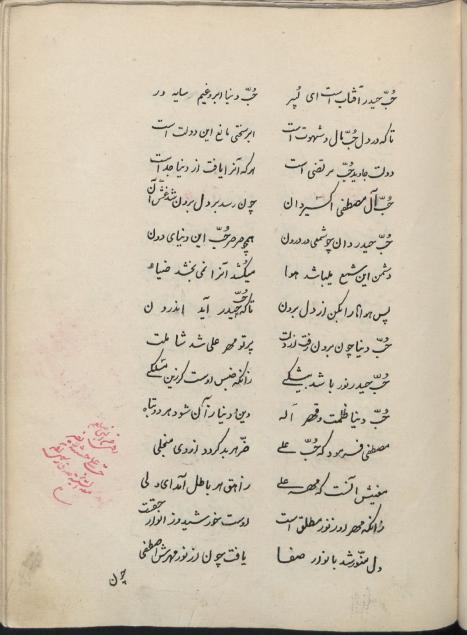 حُبّ حیدر آفتاب است ای پُسر حُبّ دنیا ابر و غیم سایه ور
تا که در دل حُبّ مال و شهوت است ابر سختی مانع این دولت است
دولت جاوید حُبّ مرتضی است هر که آنرا یافت از دنیا جداست
حُبّ آل مصطفی اکسیر دان چون رسد بر دل برون شد غش آن
حُبّ حیدر دان چو شمعی در درون همچو صرصر حُبّ این دنیای دون
دشمن این شمع باشد هوا میکُشد آنرا نمی بخشد ضیاء
پس هوانا را بکن از دل برون تا که حُبّ حیدر آید اندرون
حُبّ دنیا چون برون رفت از دلت پرتو مهر علی شد شاملت
حُبّ حیدر نور باشد بیشکی زانکه جنس اوست گزین
حُبّ دنیا ظلمت و قهر اله دین و دنیا زآن شود هر دو تباه
مصطفی فرمود که حُبّ علی ضر هر بد گردد از وی منجلی
معنیش آنست که مهر علی راهق هر باطل آمد ای ولی
زانکه مهر او ز نور مطلق است اوست خورشید و ز انوار حقست
دل منوّر شد بانوار صفا یافت چون از نور مهرش اصطفی
چون